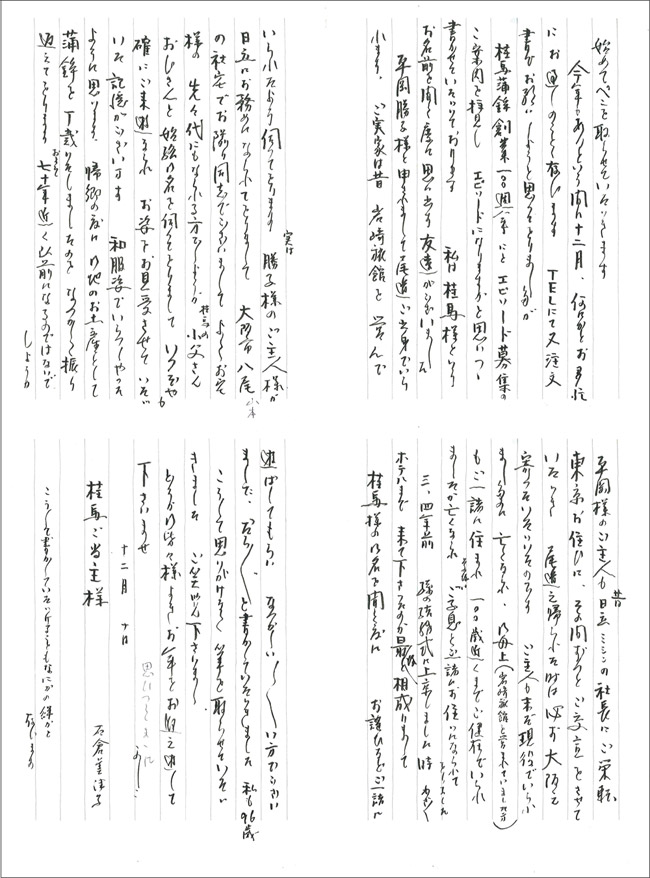 始めてペンを取らせていただきます
今年もあと という間に十二月、何かとお多忙
にお過しのことと存じます TELにて又注文
書かお願いしようと思っておりましたが
桂馬蒲鉾創業一〇〇周年にと エピソード募集の
ご案内を拝見し エピソードになりますかと思いつつ
書かせていただいております 私は桂馬様という
お名前を聞く度に思い出す友達がございました
平岡勝子様と申されまして尾道ご出身でいら
れます、ご実家は昔 岩崎旅館と 営んで
いられたよう伺っております 実は 勝子様のご主人様が
日立にお務めになられておりまして 大阪市八尾
の社宅でお隣り同志でございまして よくお宅
様の 先々代にもなられる方でしょうか 桂馬の小父さん
おじさんと 始終お名を伺っておりまして いつぞやも
確にご来 られ お姿をお見受させていただ
いた記憶がございます 和服姿でいらっしゃった
ように思います、帰郷の度に 地のお土産として
蒲鉾を下戴いたしましたのを なつかしく振り
返えっております およそ七十年近く以前になるのではないで
しょうか
平岡様のご主人も昔日立 ミシンの社長にご栄転
東京お住いに、その間ずっと ご交宜をさせて
いただき 尾道え帰られた時は必ず大阪え
寄っていただいたのです ご主人も未だ現役でいられ
ました に 亡くなられ お母上(岩崎旅館と云われていました方)
もご一諸に住まれ 一〇〇歳近くまでご健在でいられ
ましたが亡くなられ その後 ご意息と一諸にお住いになられて
おりました
三、四年前 孫の結婚式に上京しました時 わざわざ
ホテルまで来て下さったのが最後と相成りまして
桂馬様のお名を聞く度に お誘いすると一諸に
遊ばしてもらい なつかしい〱〱い方でござい
ました、 と書かしていただきました 私も96歳
こうして思いがけなく筆を取らせていただ
きました ご笑覧下さいませ
どうかお皆々様よきお年をお迎え遊して
下さいませ 思いつくまゝに
十二月 十日
桂馬ご当主様 石倉美津子
こうして書かしていただけますもなにかの縁かと
存じます